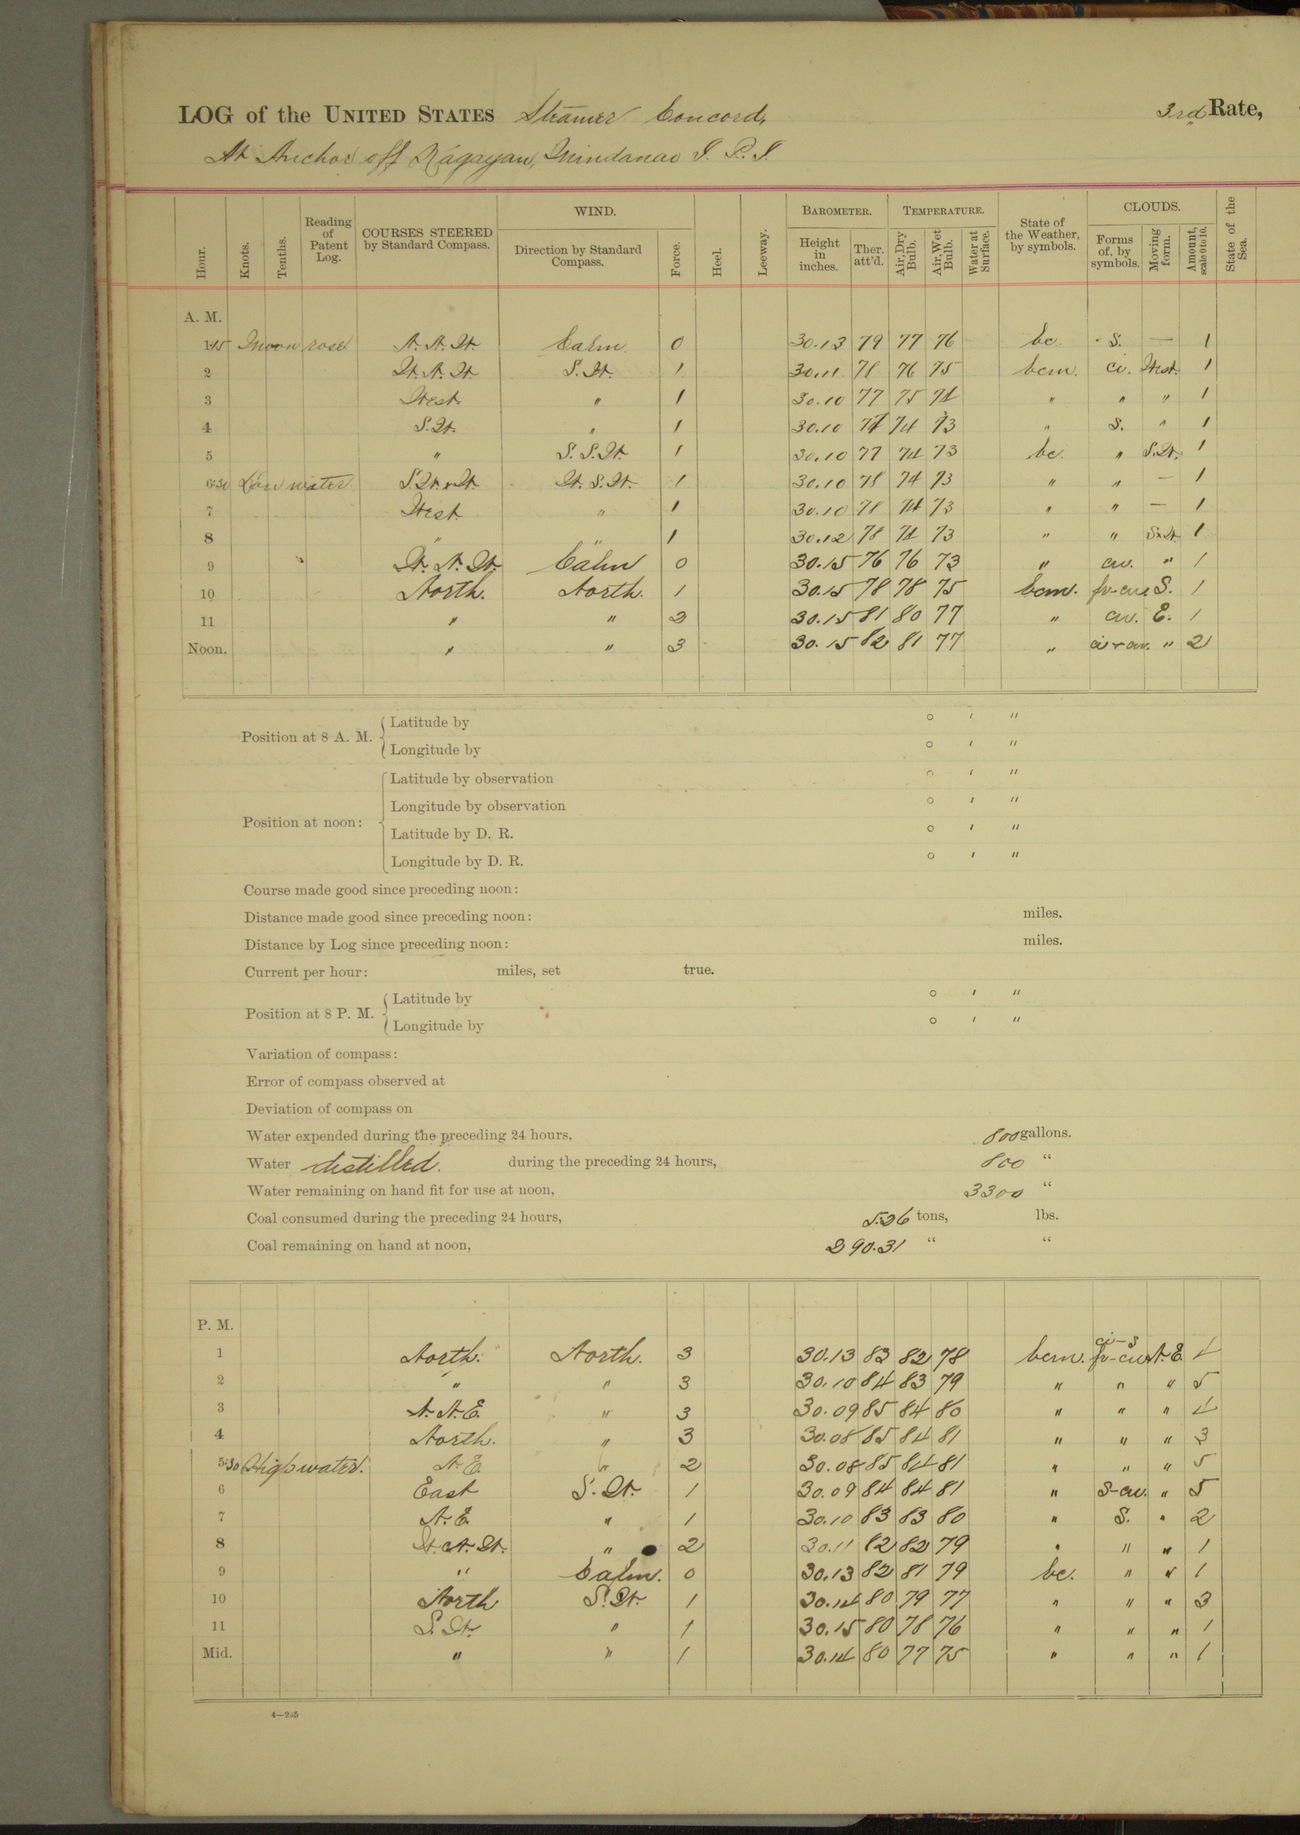 LOG of the UNITED STATES Steamer Concord, 3rd Rate,
At Anchor off Kagayan, Mindanao I. P. I.
Hour. Knots. Tenths. Reading of Patent Log. COURSES STEERED by Standard Compass. WIND. Direction by Standard Compass. Force. Heel. Leeway. BAROMETER. Height in inches. Ther. att'd. TEMPERATURE. Air, Dry Bulb. Air, Wet Bulb. Water at Surface. State of the Weather, by symbols. CLOUDS. Forms of, by symbols. Moving form. Amount, scale 0 to 10. State of the Sea.
A. M.
1:15 Moon rose N.N.W. Calm 0 30.13 79 77 76 bc. S. — 1
2 W.N.W. S.W. 1 30.11 78 76 75 bcm. ci. West. 1
3 West. " 1 30.10 77 75 74 " " " 1
4 S.W. " 1 30.10 77 74 73 " S. " 1
5 " S.S.W. 1 30.10 77 74 73 bc. " S.W. 1
6:30 Low water S.W.W. W.S.W. 1 30.10 78 74 73 " " — 1
7 West " 1 30.10 78 74 73 " " — 1
8 " " 1 30.12 78 74 73 " " S.W. 1
9 W.N.W. Calm 0 30.15 76 76 73 " cu. " 1
10 North. North. 1 30.15 78 78 75 bcm. fr-cu S. 1
11 " " 2 30.15 81 80 77 " cu. E. 1
Noon. " " 3 30.15 82 81 77 " ci-cu. " 2
Position at 8 A. M. Latitude by ° ′ ″
Longitude by ° ′ ″
Position at noon: Latitude by observation ° ′ ″
Longitude by observation ° ′ ″
Latitude by D. R. ° ′ ″
Longitude by D. R. ° ′ ″
Course made good since preceding noon:
Distance made good since preceding noon: miles.
Distance by Log since preceding noon: miles.
Current per hour: miles, set true.
Position at 8 P. M. Latitude by ° ′ ″
Longitude by ° ′ ″
Variation of compass:
Error of compass observed at
Deviation of compass on
Water expended during the preceding 24 hours, 800 gallons.
Water distilled. during the preceding 24 hours, 800 "
Water remaining on hand fit for use at noon, 3300 "
Coal consumed during the preceding 24 hours, 5.26 tons, lbs.
Coal remaining on hand at noon, 290.31 " "
P. M.
1 North. North. 3 30.13 83 82 78 bcm. ci-s fr-cu N.E. 4
2 " " 3 30.10 84 83 79 " " " 5
3 N.N.E. " 3 30.09 85 84 80 " " " 4
4 North. " 3 30.08 85 84 81 " " " 3
5:30 High water. N.E. " 2 30.08 85 84 81 " " " 5
6 East S.W. 1 30.09 84 84 81 " S-cu. " 5
7 N.E. " 1 30.10 83 83 80 " S. " 2
8 W.N.W. " 2 30.11 82 82 79 " " " 1
9 " Calm. 0 30.13 82 81 79 bc. " " 1
10 North S.W. 1 30.14 80 79 77 " " " 3
11 S.W. " 1 30.15 80 78 76 " " " 1
Mid. " " 1 30.14 80 77 75 " " " 1
4—205